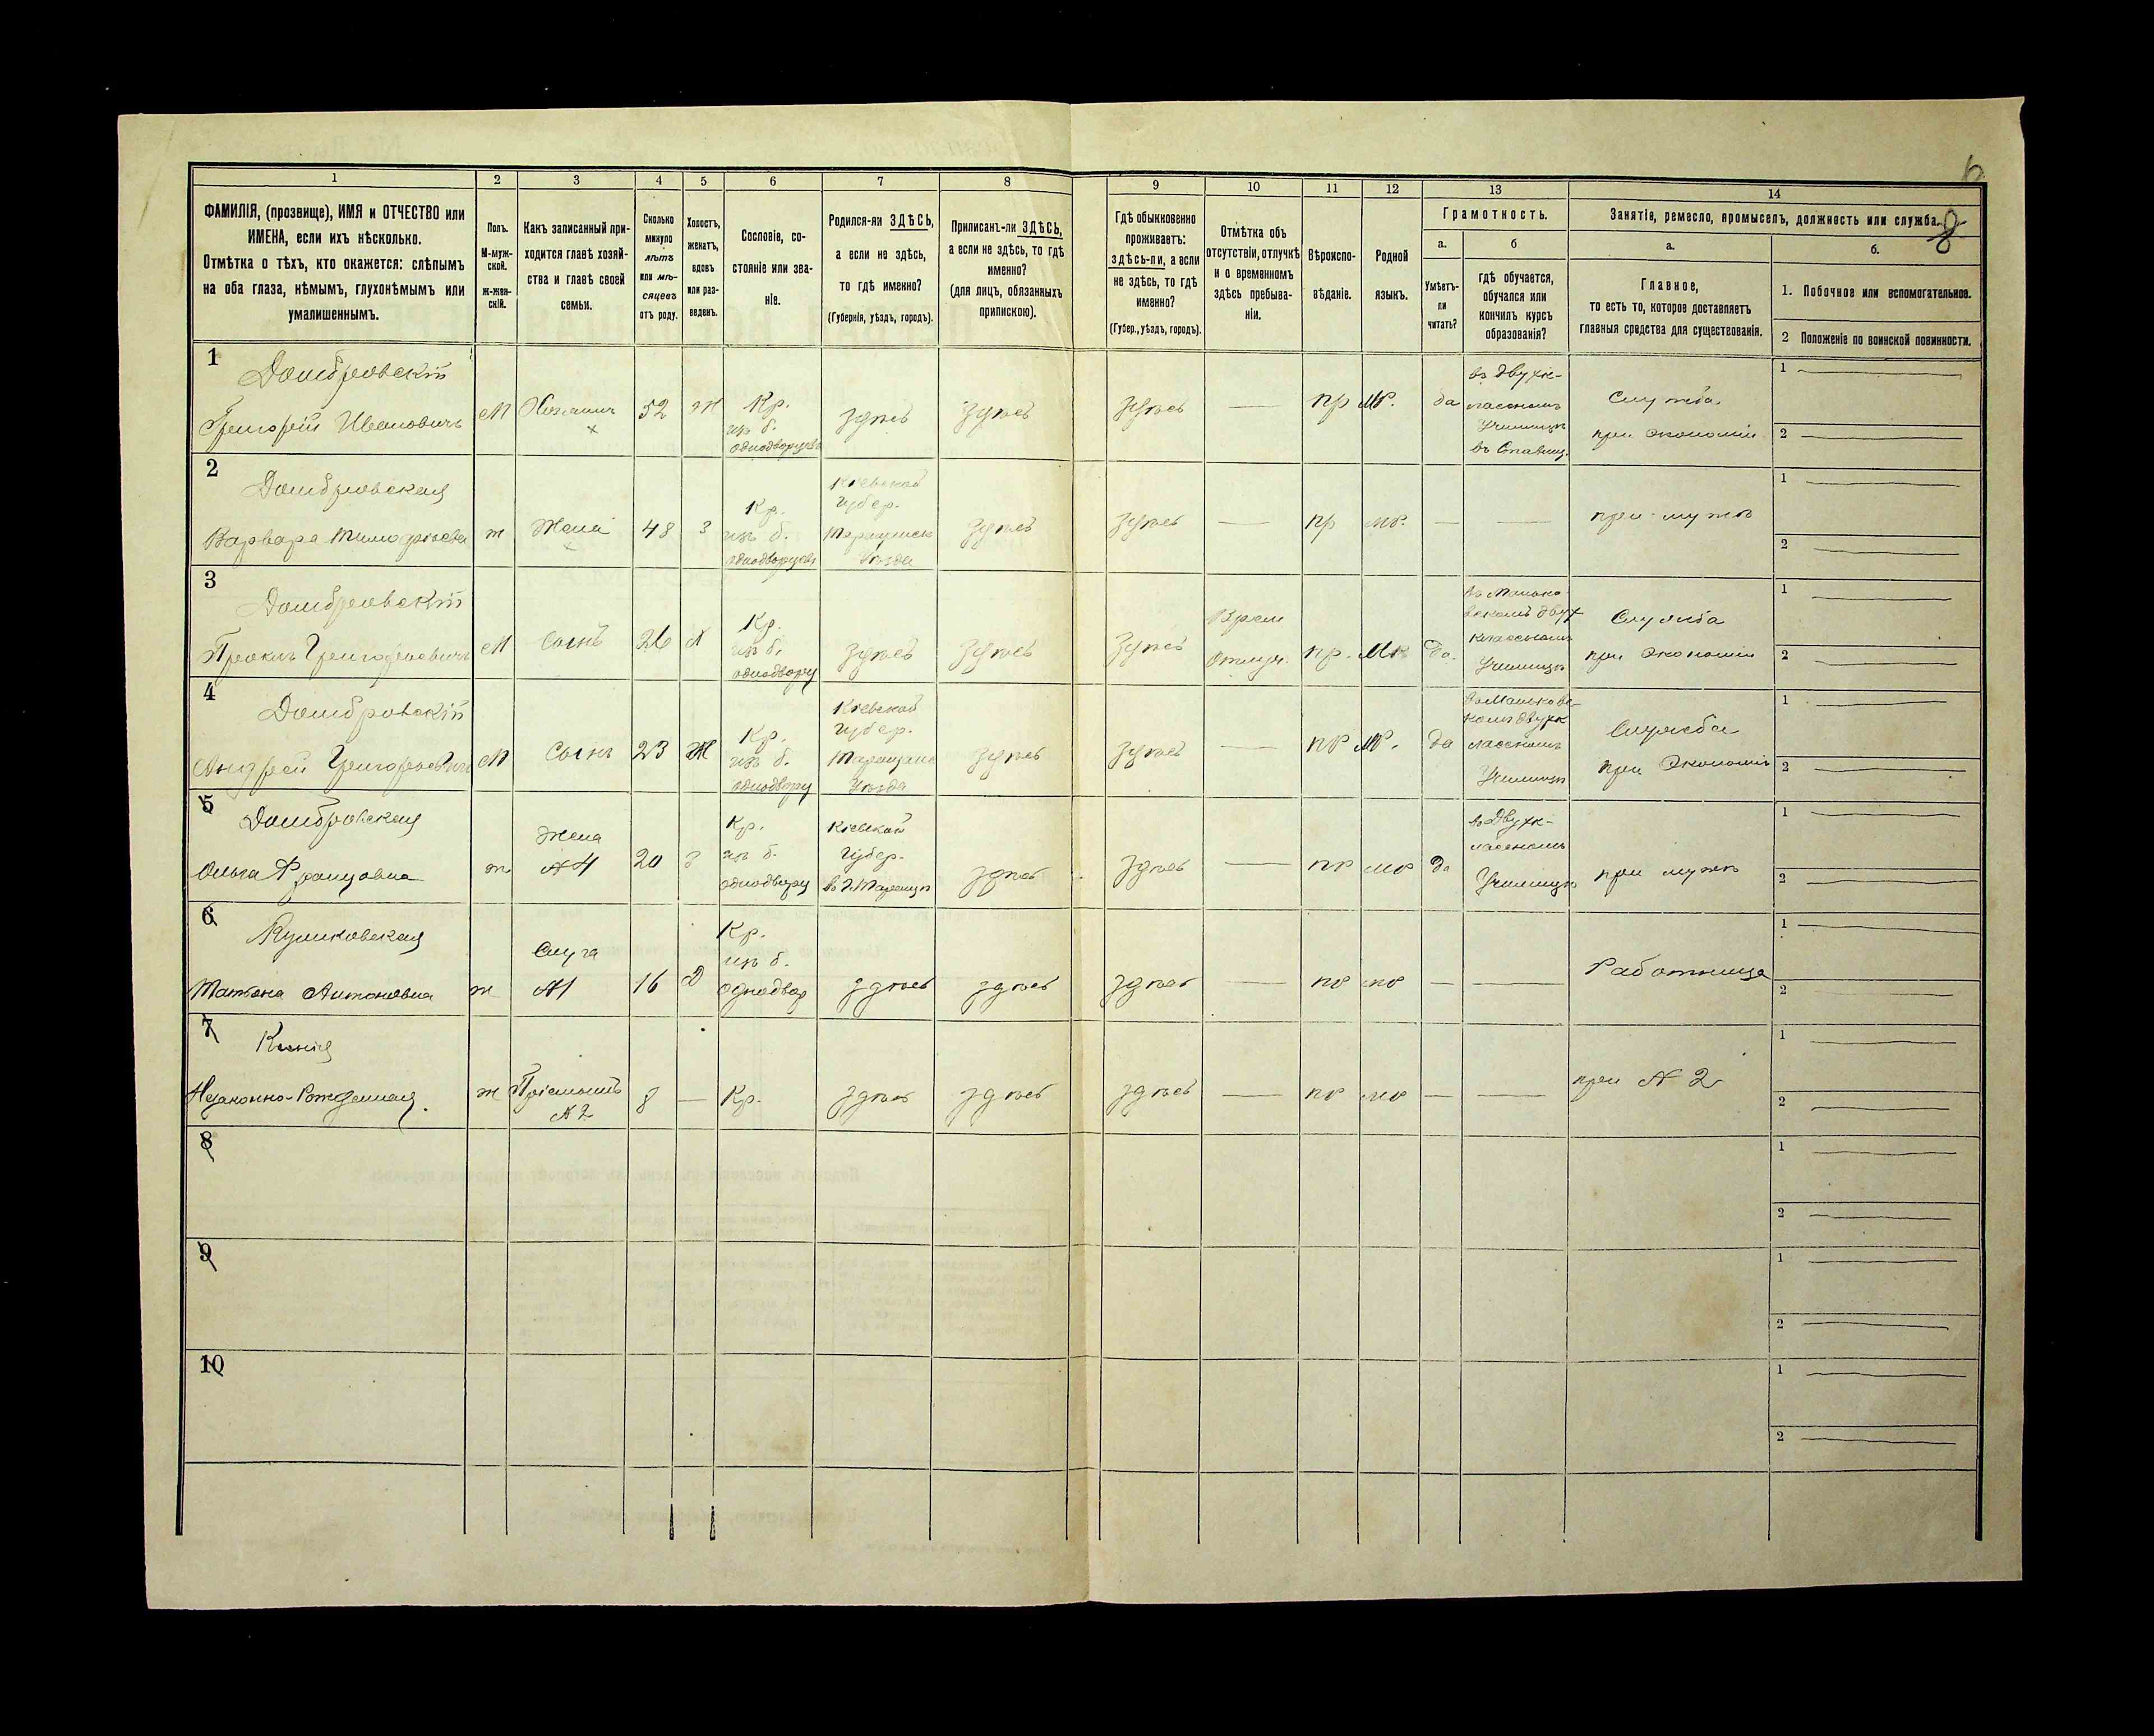 6
8
1
2
3
4
5
6
7
8
9
10
11
12
13
14
ФАМИЛІЯ, (прозвище), ИМЯ и ОТЧЕСТВО или
ИМЕНА, если ихъ нѣсколько.
Отмѣтка о тѣхъ, кто окажется: слѣпымъ
на оба глаза, нѣмымъ, глухонѣмымъ или
умалишеннымъ.
Полъ.
М-муж-
ской.
ж-жен-
скій.
Какъ записанный при-
ходится главѣ хозяй-
ства и главѣ своей
семьи.
Сколько
минуло
лѣтъ
или мѣ-
сяцевъ
отъ роду.
Холостъ,
женатъ,
вдовъ
или раз-
веденъ.
Сословіе, со-
стояніе или зва-
ніе.
Родился-ли ЗДѢСЬ,
а если не здѣсь,
то гдѣ именно?
(Губернія, уѣздъ, городъ).
Приписанъ-ли ЗДѢСЬ,
а если не здѣсь, то гдѣ
именно?
(для лицъ, обязанныхъ
припискою).
Гдѣ обыкновенно
проживаетъ:
здѣсь-ли, а если
не здѣсь, то гдѣ
именно?
(Губер., уѣздъ, городъ).
Отмѣтка объ
отсутствіи, отлучкѣ
и о временномъ
здѣсь пребыва-
ніи.
Вѣроиспо-
вѣданіе.
Родной
языкъ.
Грамотность.
а.
б
Умѣетъ-
ли
читать?
гдѣ обучается,
обучался или
кончилъ курсъ
образованія?
Занятіе, ремесло, промыселъ, должность или служба.
а.
б.
Главное,
то есть то, которое доставляетъ
главныя средства для существованія.
1. Побочное или вспомогательное.
2 Положеніе по воинской повинности.
1
Домбровскій
Григорій Ивановичъ
М
Хозяинъ
52
Ж
Кр.
изъ б.
однодворцевъ
здѣсь
здѣсь
здѣсь
—
пр
мр.
да
въ двухк-
лассномъ
Училищѣ
въ Ставищ.
Служба
при Экономіи
1
2
2
Домбровская
Варвара Тимофѣева
ж
Жена
48
З
Кр.
изъ б.
однодворцевъ
Кіевской
Губер.
Таращанск
Уѣзда
здѣсь
здѣсь
—
пр
мр.
—
—
при мужѣ
1
2
3
Домбровскій
Григорьевичъ
М
Сынъ
26
Кр.
изъ б.
однодворц
здѣсь
здѣсь
здѣсь
Врем
Отлуч.
пр.
Мр
да.
двух
классномъ
Училищѣ
Служба
при Экономіи
1
2
4
Домбровскій
Андрей Григорьевичъ
М
Сынъ
23
Ж
Кр.
изъ б.
однодворц
Кіевской
Губер.
Таращанск
Уѣзда
здѣсь
здѣсь
—
пр
мр.
да
комъ двухк
лассномъ
Училищѣ
Служба
при Экономіи
1
2
5
Домбровская
Ольга Францовна
ж
Жена
№4
20
З
Кр.
изъ б.
однодворц
Кіевской
Губер.
въ г. Таращѣ
здѣсь
здѣсь
—
пр
мр
да
въ Двухк-
лассномъ
Училищѣ
при мужѣ
1
2
6
Куликовская
Татьяна Антоновна
ж
Слуга
№1
16
Д
Кр.
изъ б.
однодвор
здѣсь
здѣсь
здѣсь
—
пр
мр
—
—
Работница
1
2
7
Ксенія
Незаконно-Рожденная.
ж
Пріемышъ
№2
8
—
Кр.
здѣсь
здѣсь
здѣсь
—
пр
мр
—
—
при №2
1
2
8
1
2
9
1
2
10
1
2